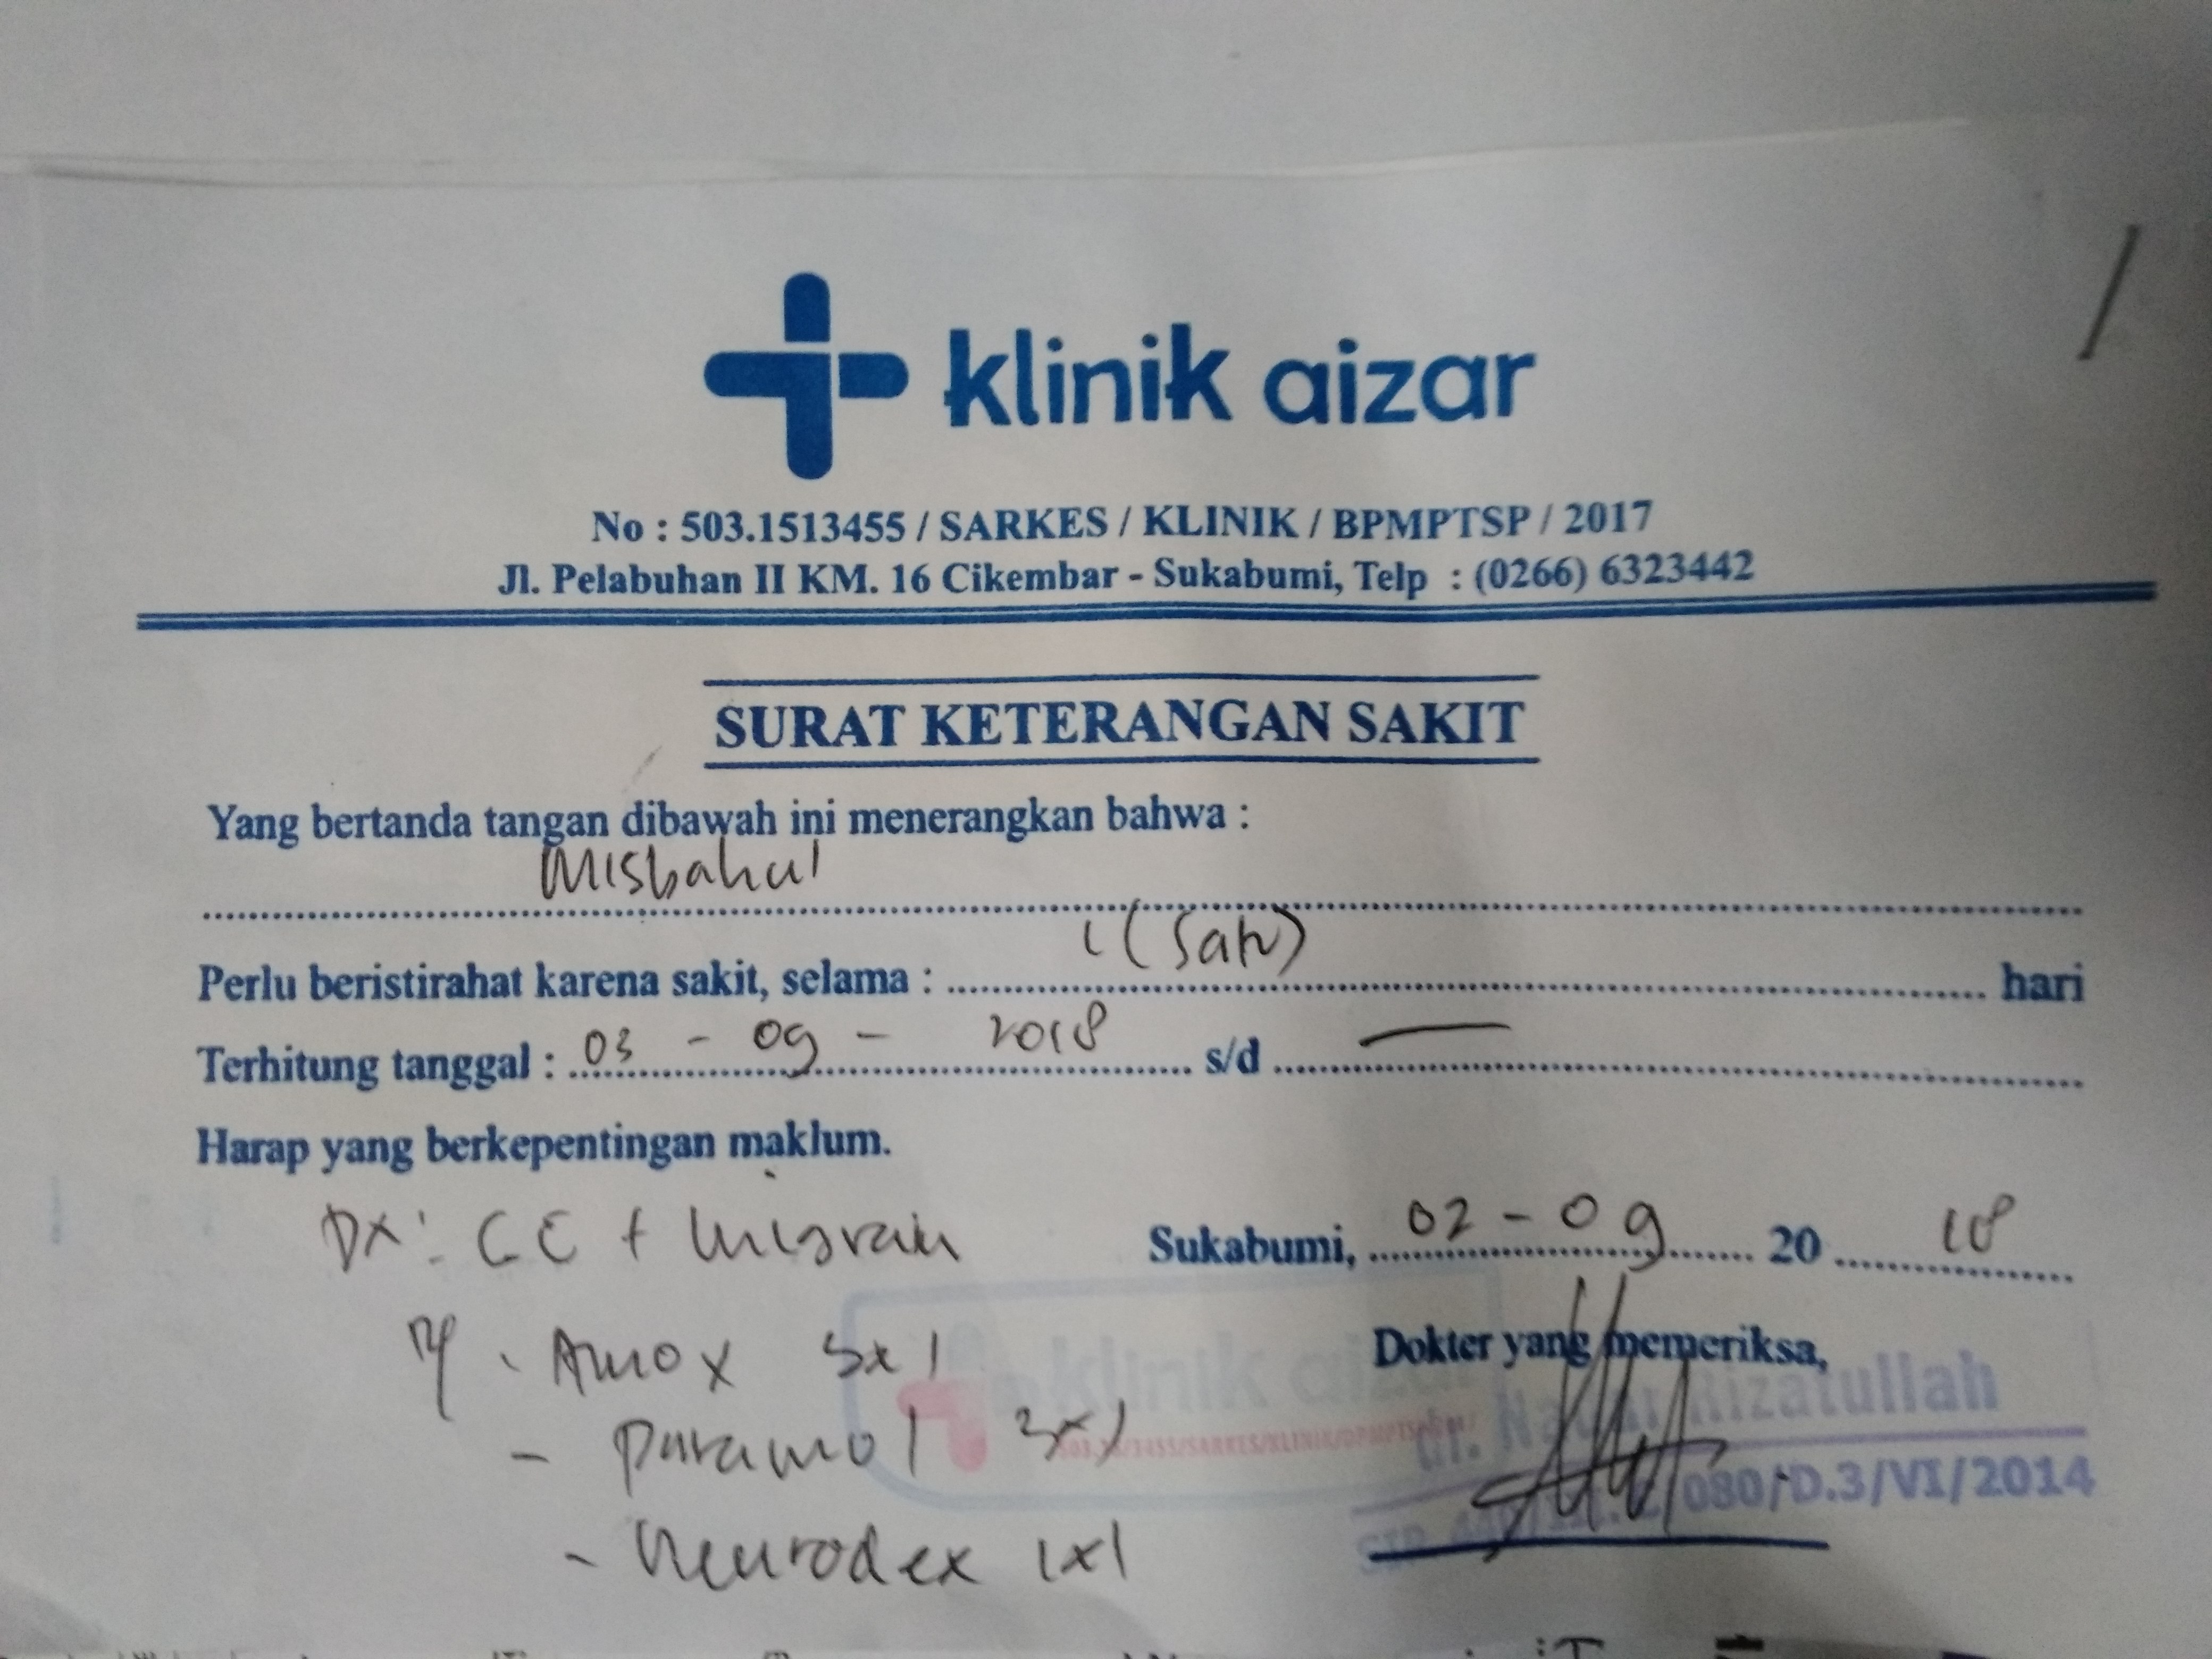 klinik aizar
No : 503.1513455 / SARKES / KLINIK / BPMPTSP / 2017
Jl. Pelabuhan II KM. 16 Cikembar - Sukabumi, Telp : (0266) 6323442
SURAT KETERANGAN SAKIT
Yang bertanda tangan dibawah ini menerangkan bahwa :
Misbahul
Perlu beristirahat karena sakit, selama : 1 (Satu) hari
Terhitung tanggal : 03 - 09 - 2018 s/d —
Harap yang berkepentingan maklum.
Dx : CC + Migrain
Sukabumi, 02 - 09 20 18
R/ - Amox 3x1
Dokter yang memeriksa,
klinik aizar
- Paramol 3x1
dr. Rizatullah
080/D.3/VI/2014
- Neurodex 1x1